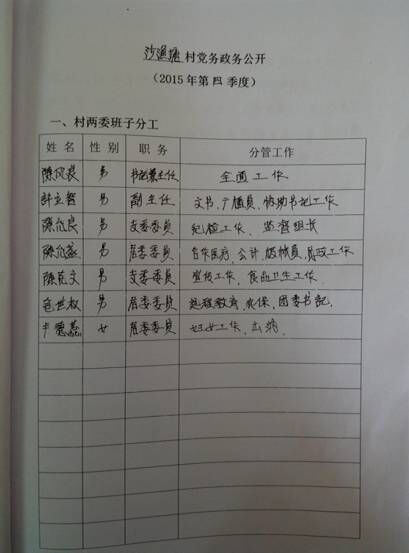 沙渔塘村党务政务公开
(2015年第四季度)
一、村两委班子分工
姓名 性别 职务 分管工作
陈 男 书记兼主任 全面工作
许 男 副主任 文书、广播员、协助书记工作
陈 男 支委委员 纪检工作、监督组长
陈 男 居委委员 合作医疗、会计、民政工作
陈 男 支委委员 宣传工作、食品卫生工作
男 居委委员 远程教育、团委书记
卡德 女 居委委员 妇女工作、出纳